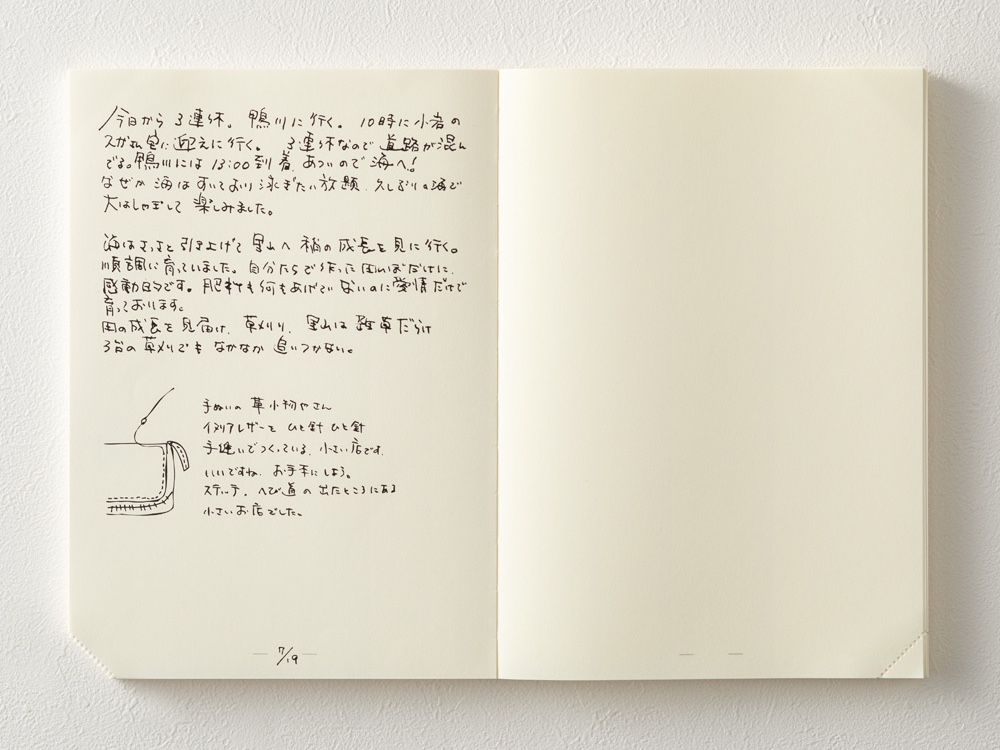 今日から 3連休。 鴨川に行く。 10時に小岩の
スガさん宅に迎えに行く。 3連休なので道路が混ん
でる。鴨川には 13:00到着 あついので海へ!
なぜか海はすいており泳ぎたい放題. 久しぶりの海で
大はしゃぎして 楽しみました。
海はさっさと引き上げて 里山へ 稲の成長を見に行く。
順調に育っていました。 自分たちで作った田んぼだけに.
感動ひとしおです。 肥料も何もあげていないのに愛情だけで
育っております。
田の成長を見届け. 草刈り. 里山は雑草だらけ
3台の草刈りでも なかなか 追いつかない。
手ぬいの 革小物やさん
イタリアレザーを ひと針 ひと針
手縫いでつくっている. 小さい店です.
いいですね. お手本にしよう。
ステッチ. へび道の出たところにある
小さいお店でした。
7/19